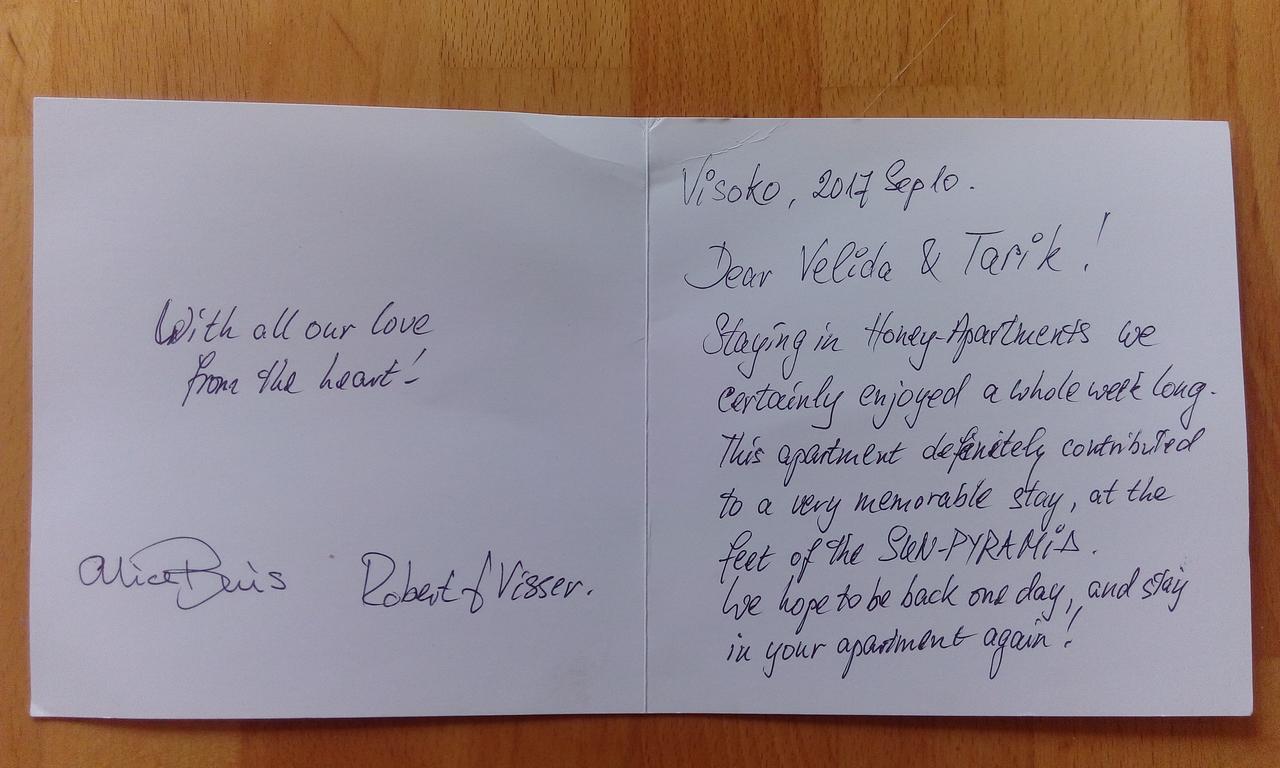 With all our love
from the heart!
Alice Buis Robert J Visser.
Visoko, 2017 Sep 10.
Dear Velida & Tarik!
Staying in Honey-Apartments we
certainly enjoyed a whole week long.
This apartment definitely contributed
to a very memorable stay, at the
feet of the SUN-PYRAMID.
We hope to be back one day, and stay
in your apartment again!